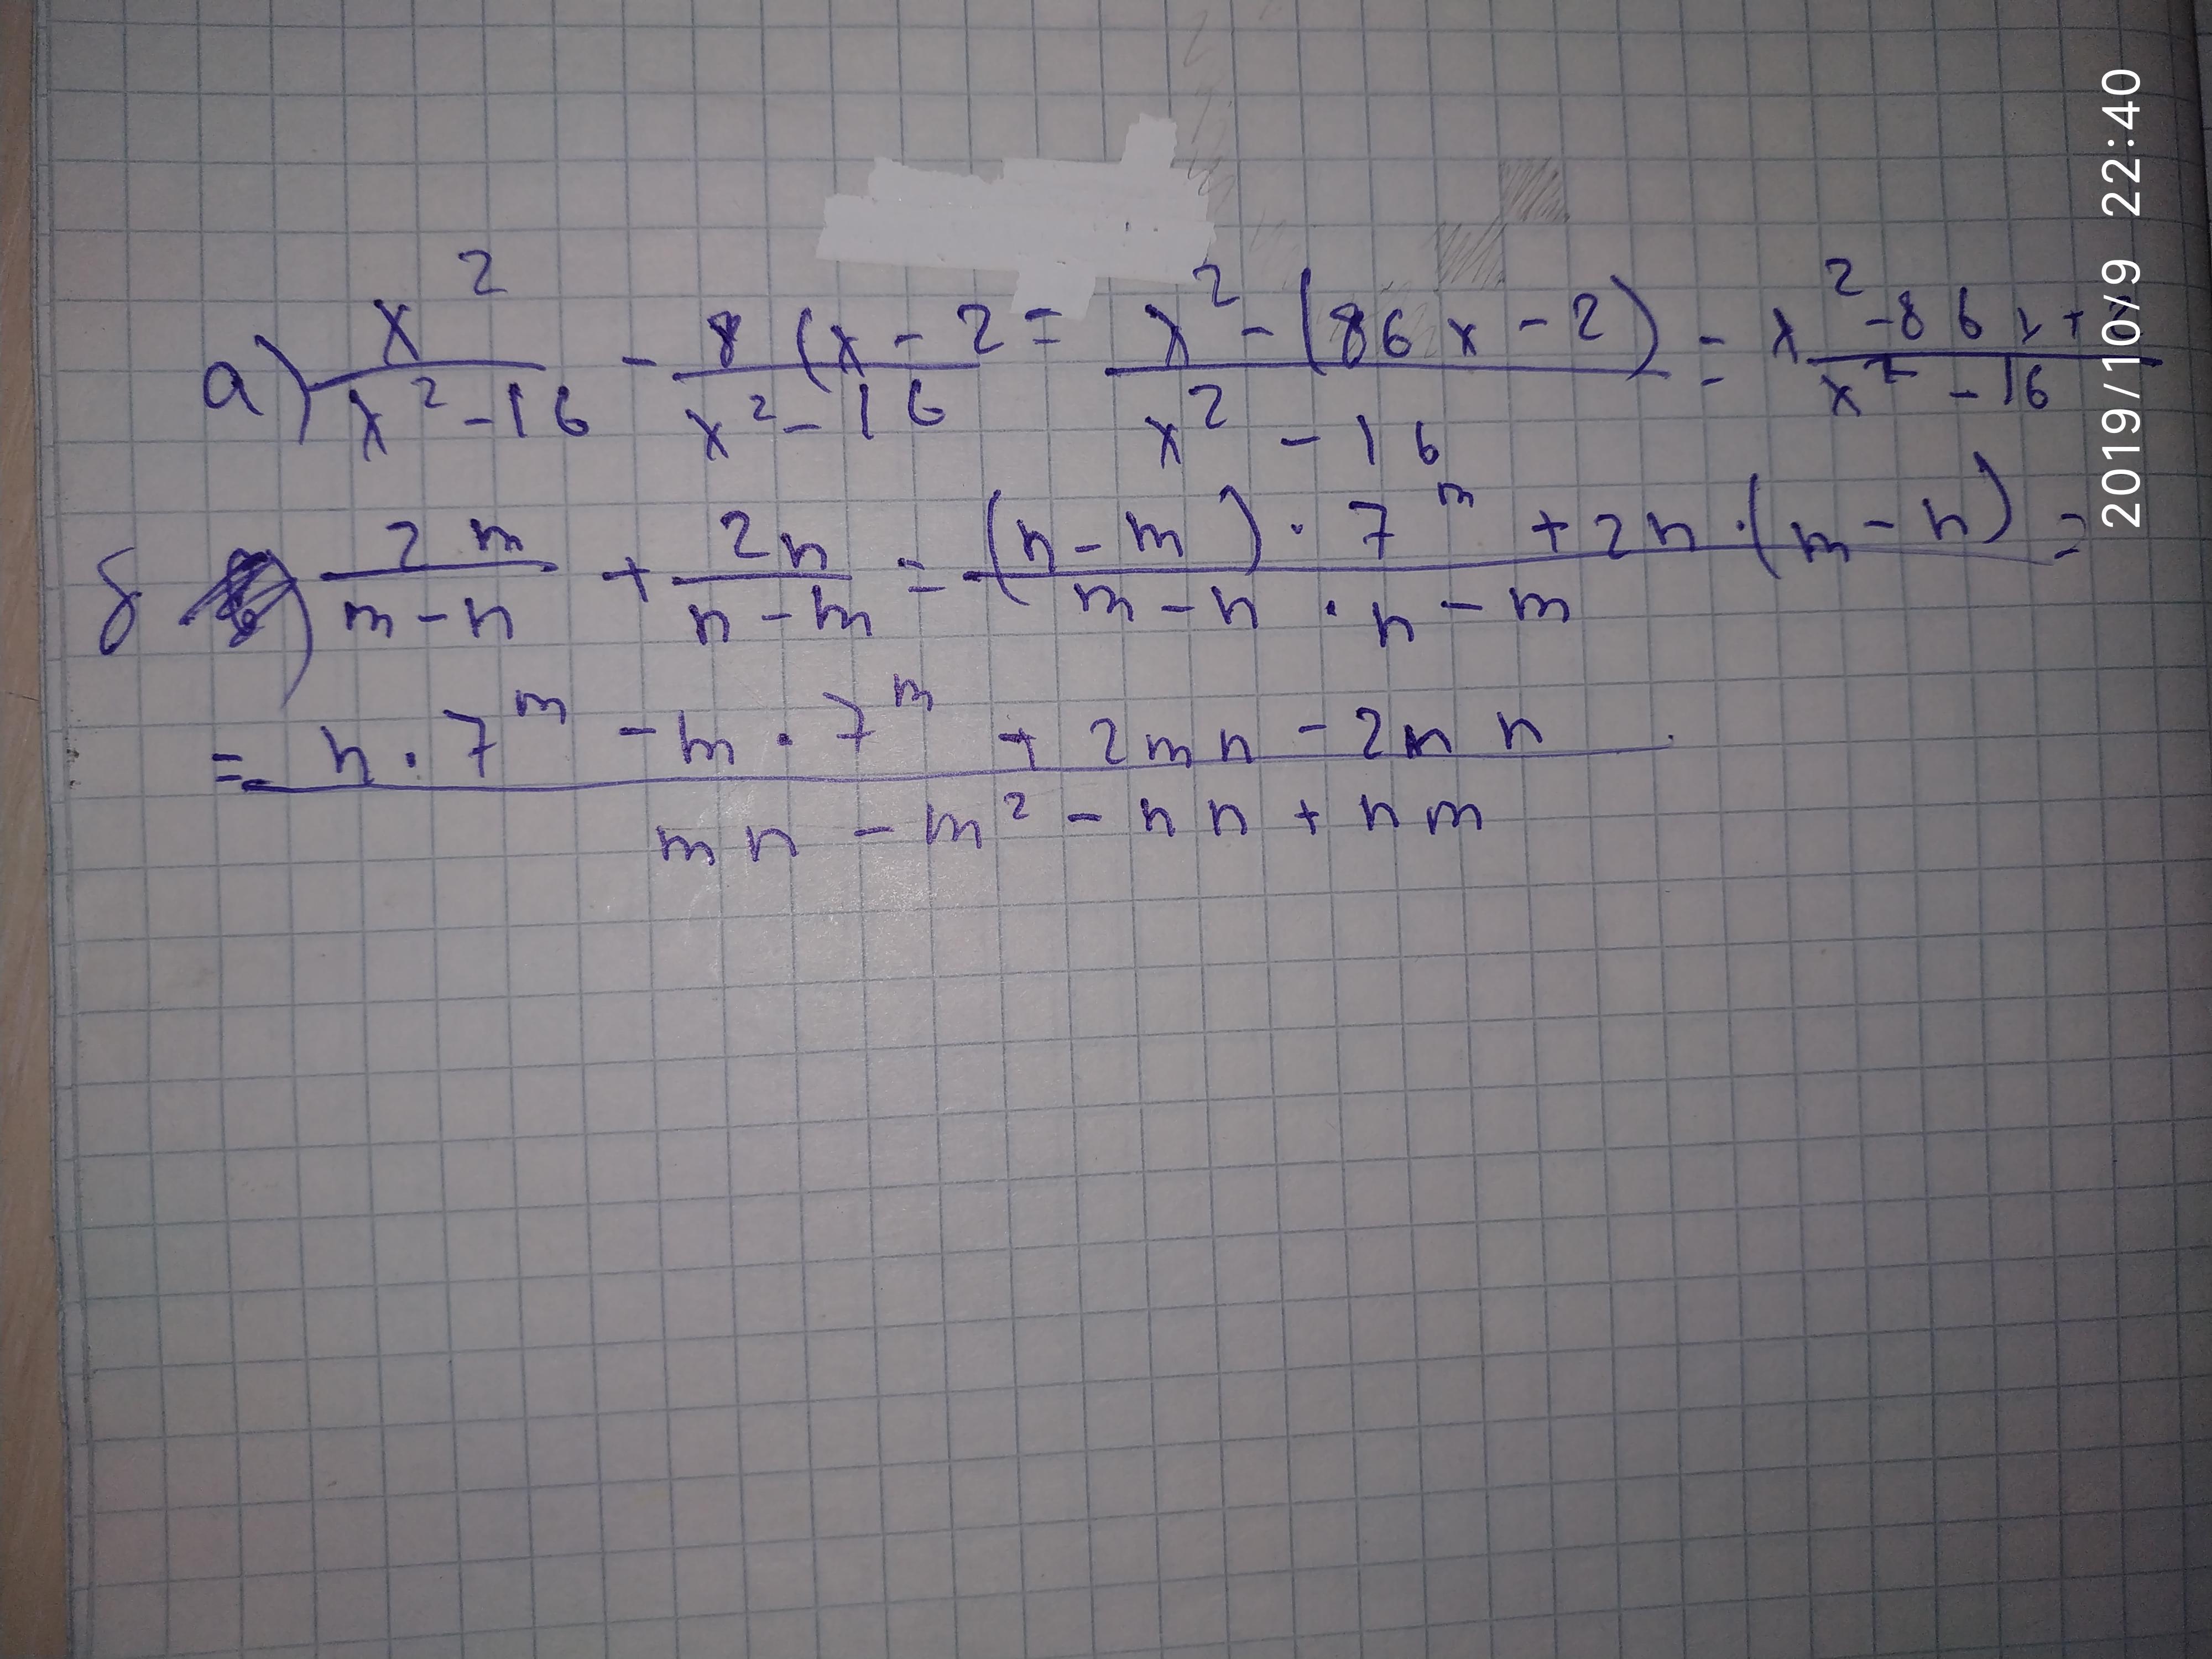 а) x²/(x²-16) - 8(x-2/(x²-16) = (x²-(86x-2))/(x²-16) = (x²-86x+)/(x²-16)
б) 2m/(m-n) + 2n/(n-m) = ((n-m)·7^m+2n·(m-n))/(m-n·n-m) =
= (n·7^m-m·7^m+2mn-2nn)/(mn-m²-nn+nm)
2019/10/9 22:40